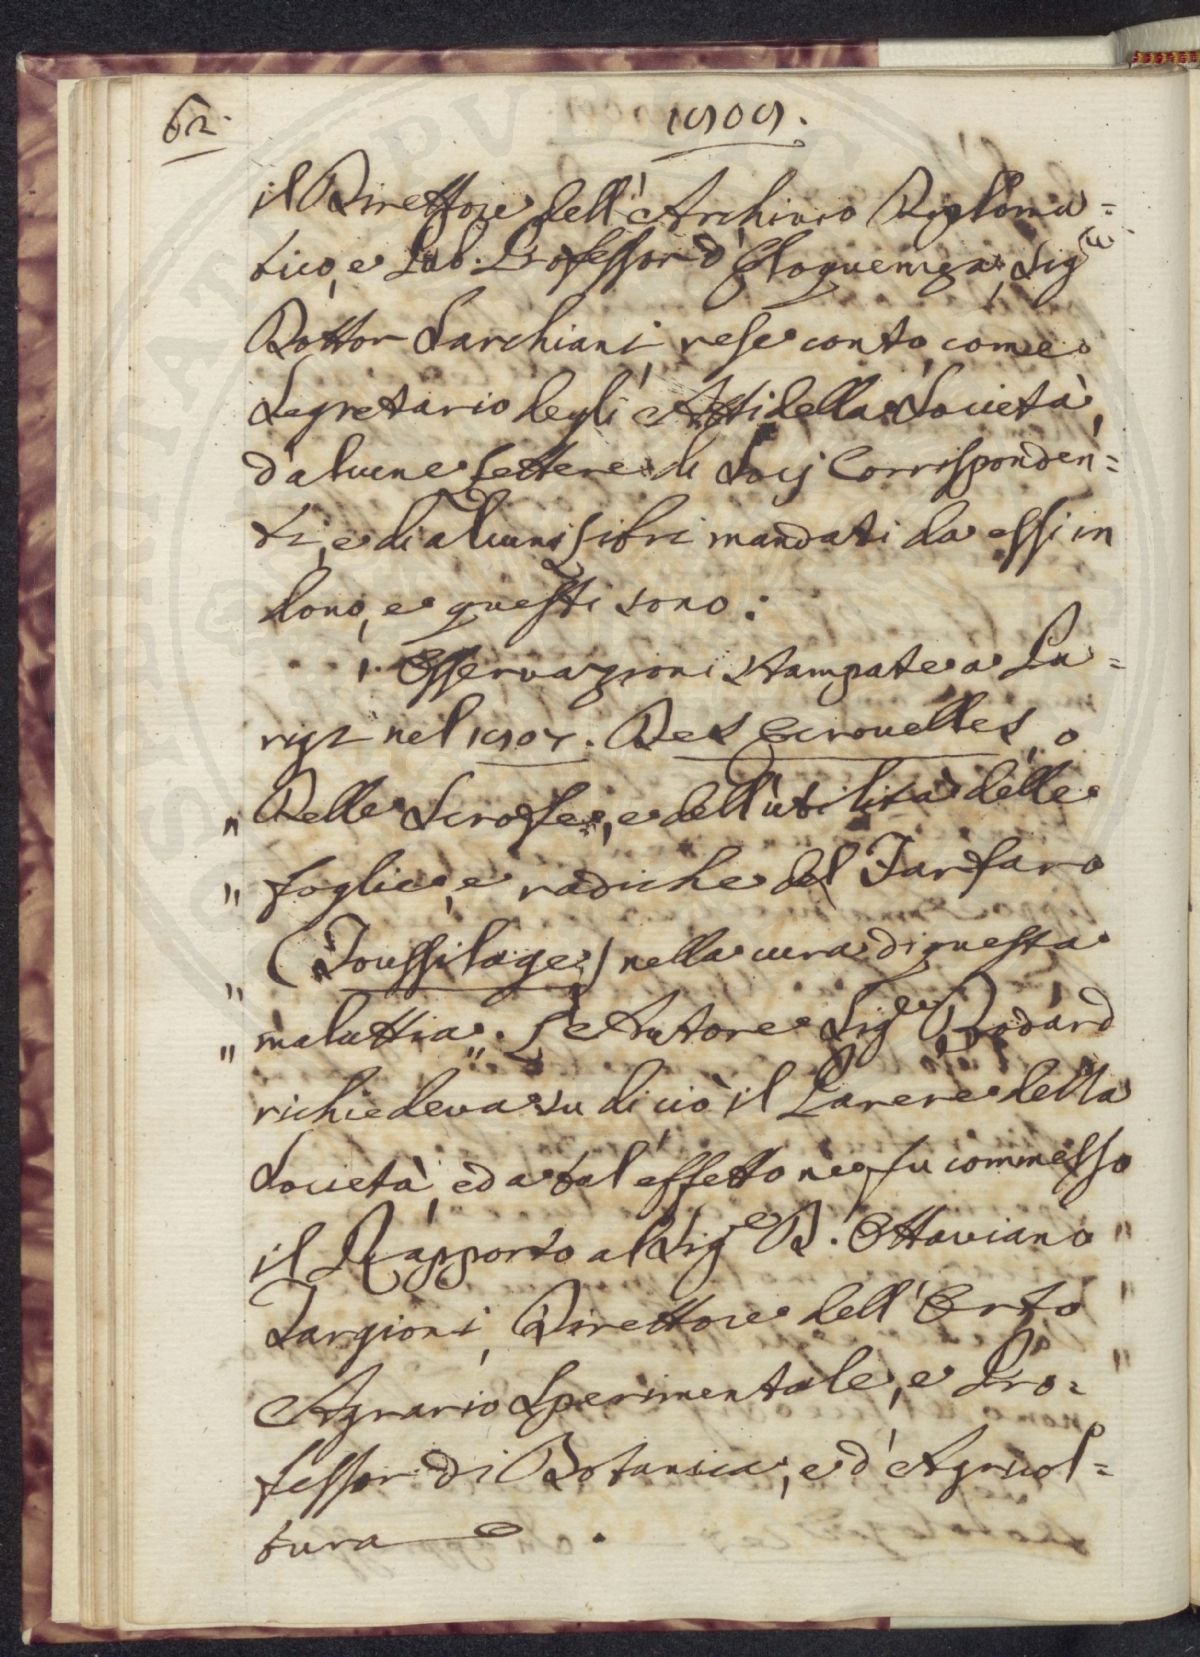 62. 1809.
il Direttore dell'Archivio Diploma=
tico, e Pub. Professor d'Eloquenza, Sig.re
Dottor Sarchiani, rese conto, come
Segretario degli Atti della Società,
d'alcune Lettere di Socj Corrisponden=
ti, e di alcuni Libri mandati da essi in
dono, e questi sono:
1. Osservazioni stampate a Pa=
rigi nel 1807. Des Ecrouelles, o
" Delle Scrofe, e dell'utilità delle
" foglie, e radiche del Farfaro
" (Toussilage) nella cura di questa
" malattia". L'Autore Sig.e Bodard
richiedeva su di ciò il Parere della
Società, ed a tal'effetto ne fu commesso
il Rapporto al Sig.e D. Ottaviano "
Targioni, Direttore dell'Orto "
Agrario Sperimentale, e Pro= "
fessor di Botanica, e d'Agricol=
tura